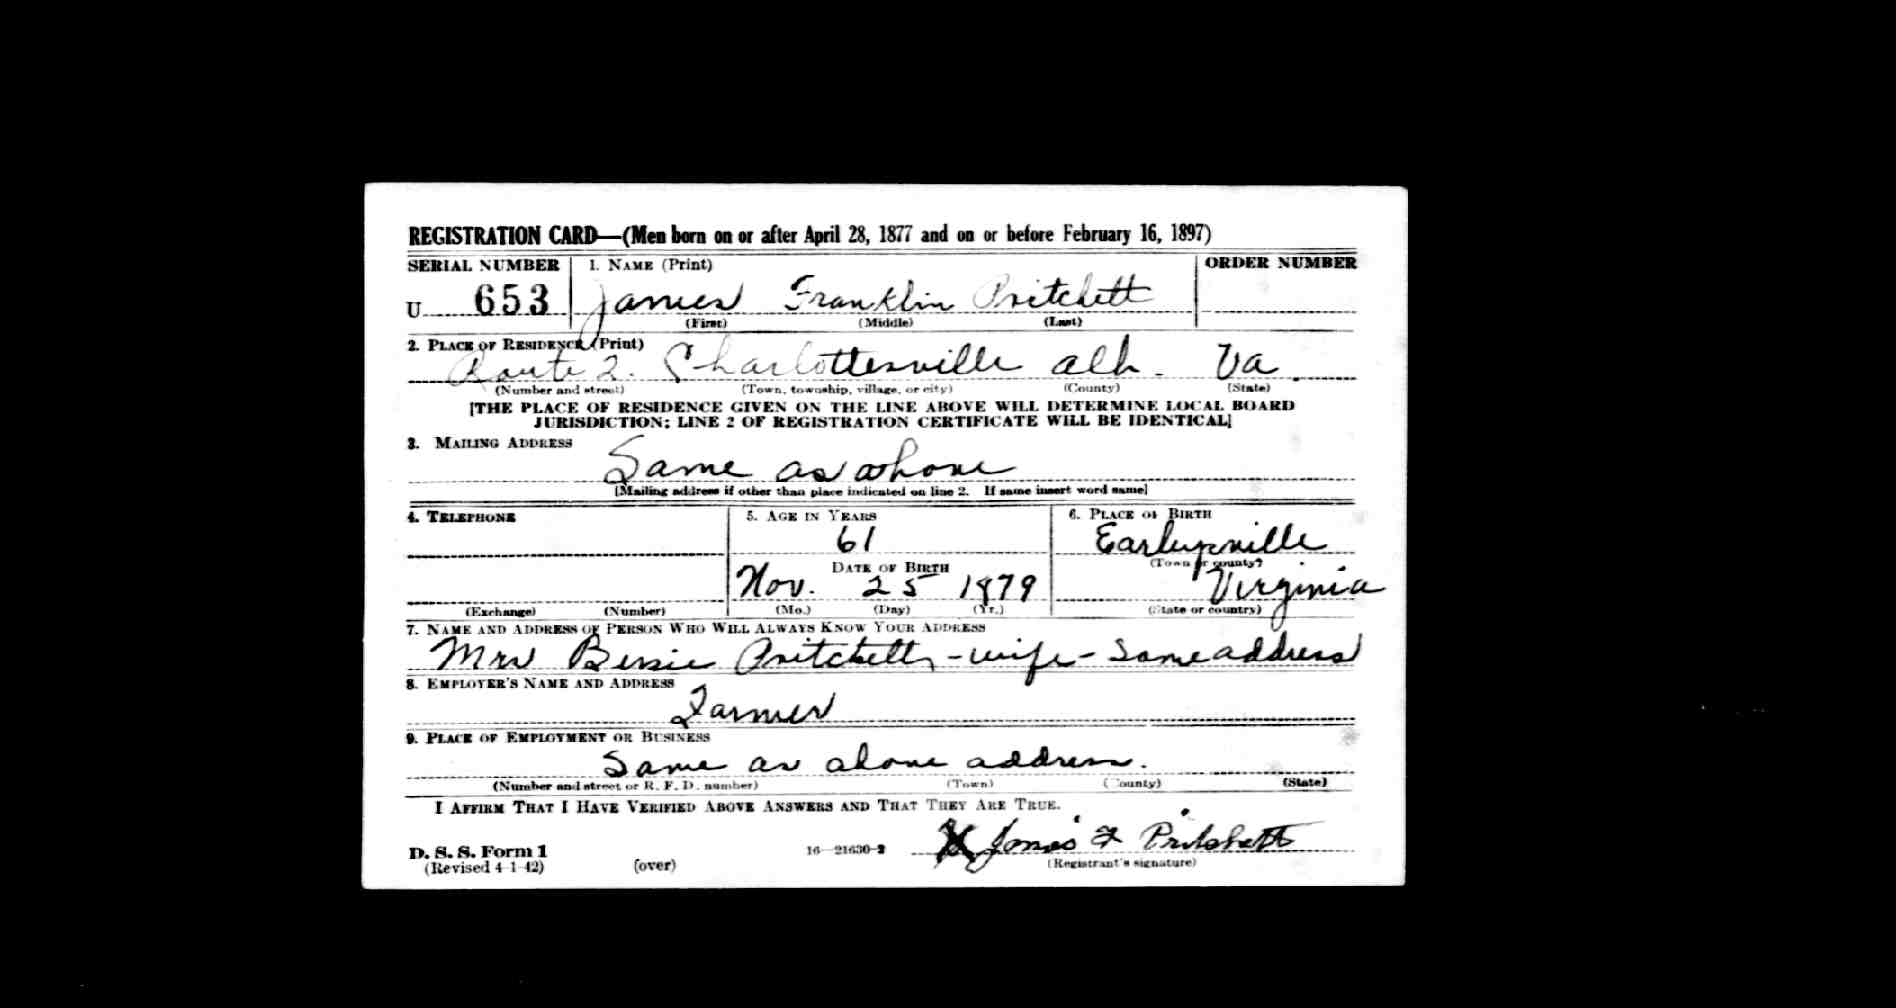 REGISTRATION CARD—(Men born on or after April 28, 1877 and on or before February 16, 1897)
SERIAL NUMBER 1. NAME (Print) ORDER NUMBER
U 653 James Franklin Pritchett
(First) (Middle) (Last)
2. PLACE OF RESIDENCE (Print)
Route 2. Charlottesville alb. Va
(Number and street) (Town, township, village, or city) (County) (State)
[THE PLACE OF RESIDENCE GIVEN ON THE LINE ABOVE WILL DETERMINE LOCAL BOARD
JURISDICTION; LINE 2 OF REGISTRATION CERTIFICATE WILL BE IDENTICAL]
3. MAILING ADDRESS
Same as above
[Mailing address if other than place indicated on line 2. If same insert word same]
4. TELEPHONE 5. AGE IN YEARS 6. PLACE OF BIRTH
61 Earlysville
DATE OF BIRTH (Town or county)
Nov. 25 1879 Virginia
(Exchange) (Number) (Mo.) (Day) (Yr.) (State or country)
7. NAME AND ADDRESS OF PERSON WHO WILL ALWAYS KNOW YOUR ADDRESS
Mrs Bessie Pritchett - wife - Same address
8. EMPLOYER'S NAME AND ADDRESS
Farmer
9. PLACE OF EMPLOYMENT OR BUSINESS
Same as above address.
(Number and street or R. F. D. number) (Town) (County) (State)
I AFFIRM THAT I HAVE VERIFIED ABOVE ANSWERS AND THAT THEY ARE TRUE.
X James F Pritchett
D. S. S. Form 1 16—21630-2
(Revised 4-1-42) (over) (Registrant's signature)